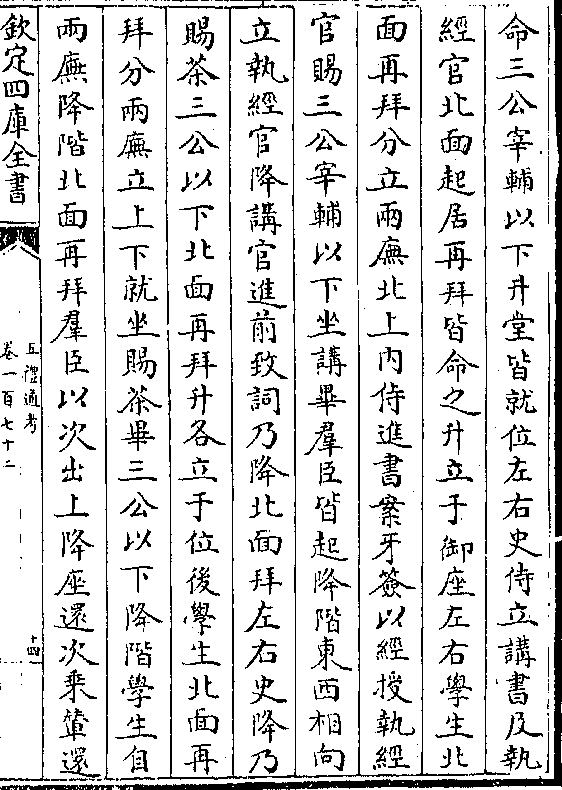 命三公宰輔以下升堂皆就位左右史侍立講書及執
經官北面起居再拜皆命之升立于御座左右學生北
面再拜分立兩廡北上内侍進書案牙籤以經授執經
官賜三公宰輔以下坐講畢羣臣皆起降階東西相向
立執經官降講官進前致詞乃降北面拜左右史降乃
賜茶三公以下北面再拜升各立于位後學生北面再
拜分兩廡立上下就坐賜茶畢三公以下降階學生自
兩廡降階北面再拜羣臣以次出上降座還次乗輦還
欽定四庫全書
五禮通考
卷一百七十二
十四